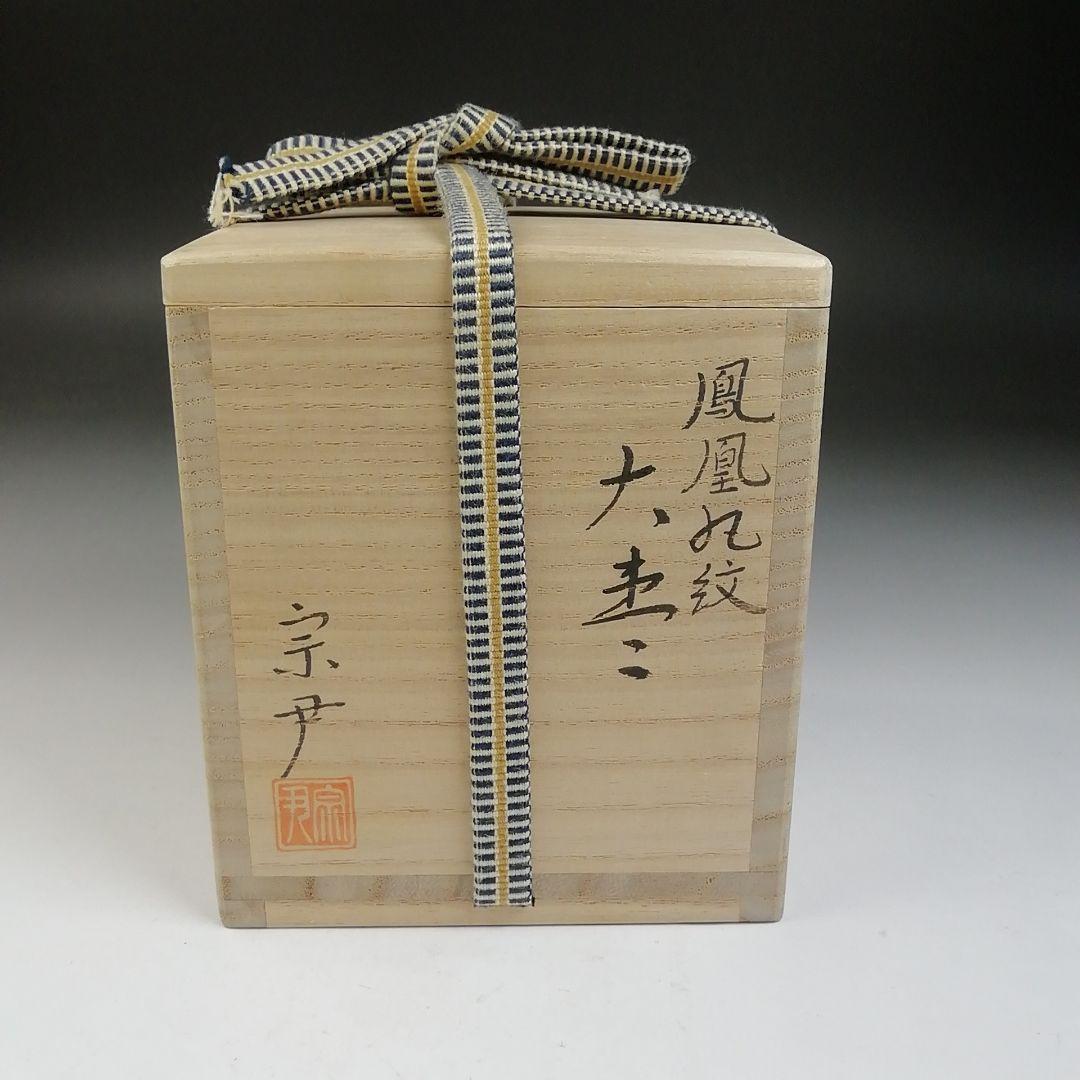 鳳凰丸紋
大枣
宗尹
宗尹